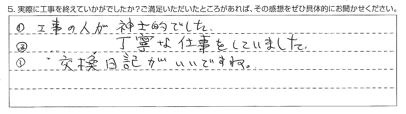 5. 実際に工事を終えていかがでしたか?ご満足いただいたところがあれば、その感想をぜひ具体的にお聞かせください。
① 工事の人が紳士的でした。
② 丁寧な仕事をしていました。
① 交換日記がいいですね。